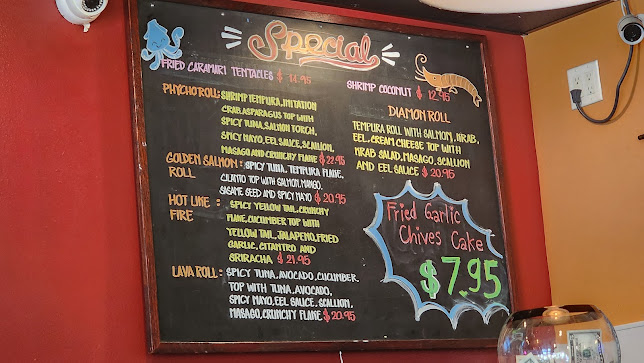 Special
FRIED CARAMARI TENTACLES $ 14.95
PHYCHO ROLL: SHRIMP TEMPURA, IMITATION
CRAB, ASPARAGUS TOP WITH
SPICY TUNA, SALMON TORCH,
SPICY MAYO, EEL SAUCE, SCALLION,
MASAGO AND CRUNCHY FLAKE $ 22.95
GOLDEN SALMON : SPICY TUNA, TEMPURA FLAKE,
ROLL CILANTO TOP WITH SALMON, MANGO,
SASAME SEED AND SPICY MAYO $ 20.95
HOT LIKE : SPICY YELLOW TAIL, CRUNCHY
FIRE FLAKE, CUCUMBER TOP WITH
YELLOW TAIL, JALAPENO, FRIED
GARLIC, CITANTRO AND
SRIRACHA $ 21.95
LAVA ROLL : SPICY TUNA, AVOCADO, CUCUMBER
TOP WITH TUNA, AVOCADO,
SPICY MAYO, EEL SAUCE, SCALLION,
MASAGO, CRUNCHY FLAKE $ 20.95
SHRIMP COCONUT $ 12.95
DIAMON ROLL
TEMPURA ROLL WITH SALMON, KRAB,
EEL, CREAM CHEESE TOP WITH
KRAB SALAD, MASAGO, SCALLION
AND EEL SAUCE $ 20.95
Fried Garlic
Chives Cake
$7.95